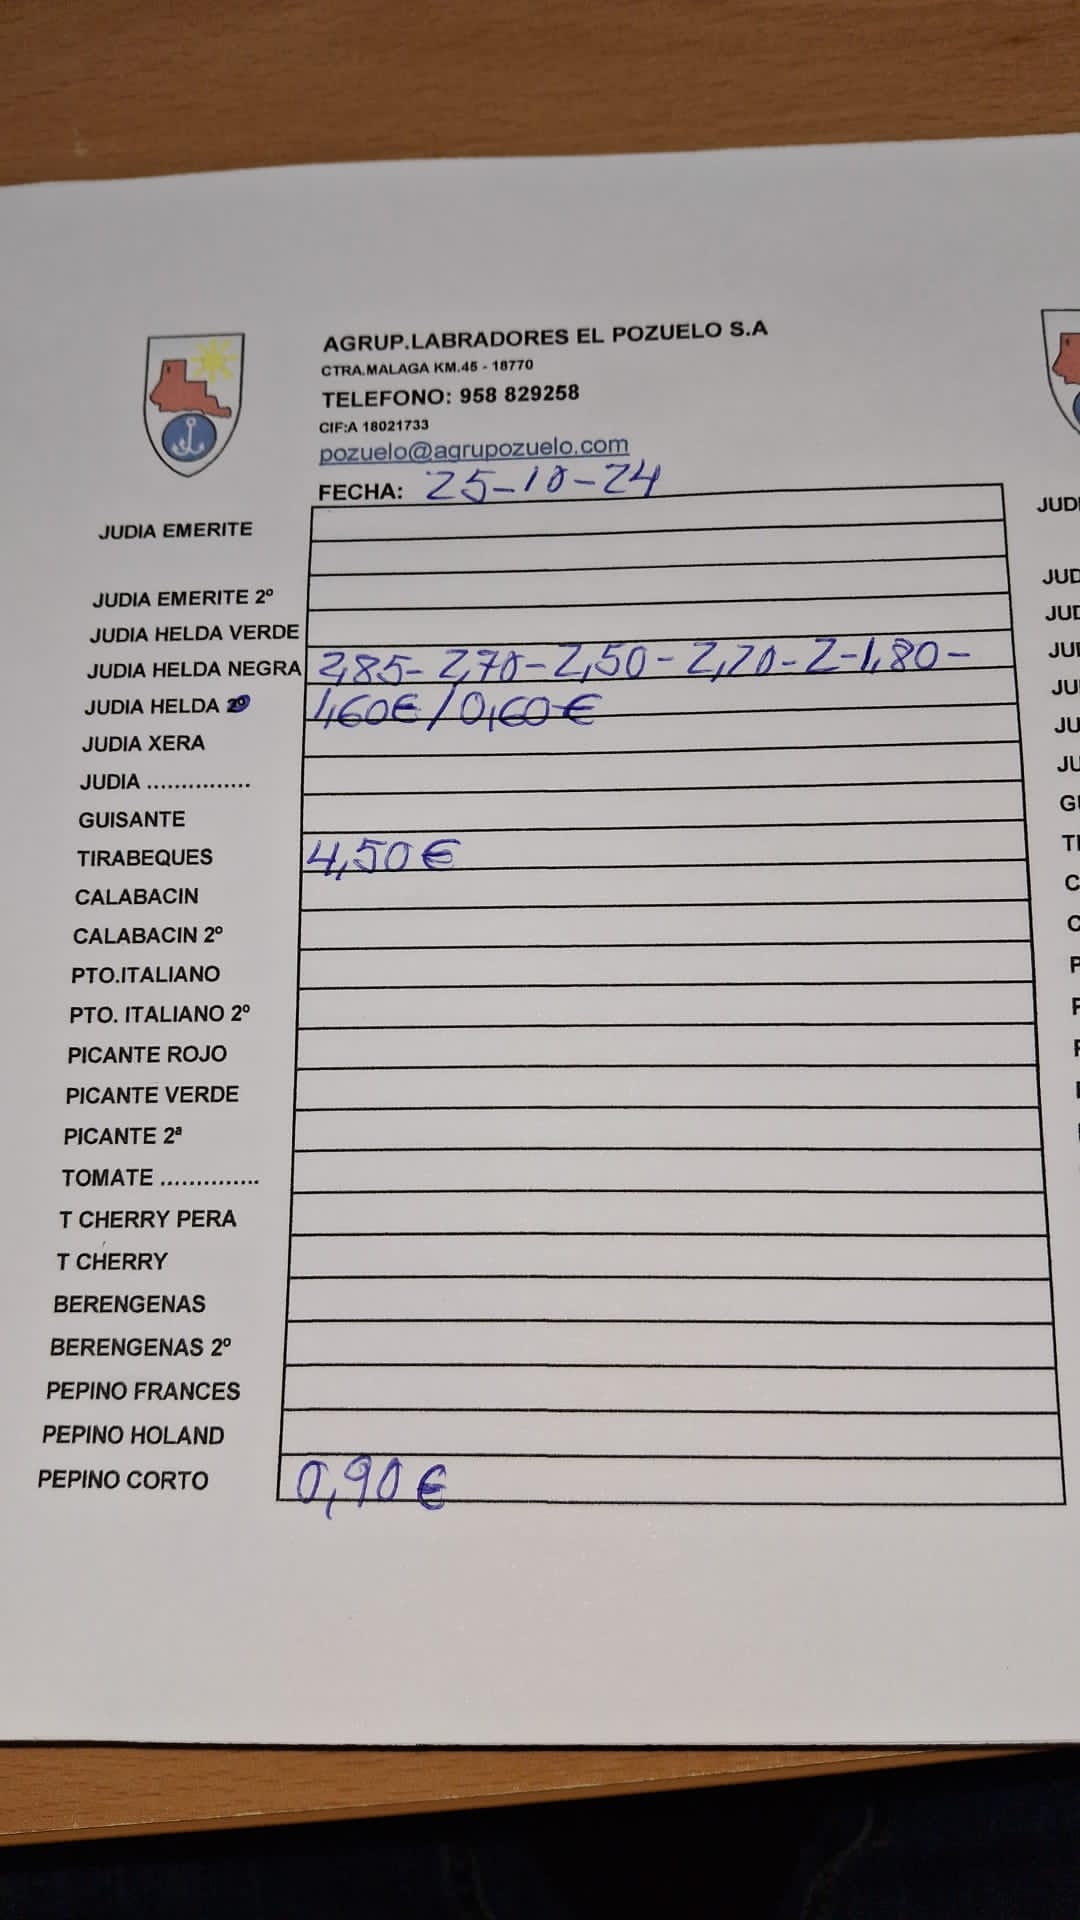 AGRUP.LABRADORES EL POZUELO S.A
CTRA.MALAGA KM.45 - 18770
TELEFONO: 958 829258
CIF:A 18021733
pozuelo@agrupozuelo.com
FECHA: 25-10-24
JUDIA EMERITE
JUDIA EMERITE 2º
JUDIA HELDA VERDE
JUDIA HELDA NEGRA 2,85- 2,70- 2,50- 2,20- 2-1,80-
JUDIA HELDA 2º 1,60€/0,60€
JUDIA XERA
JUDIA ...............
GUISANTE
TIRABEQUES 4,50€
CALABACIN
CALABACIN 2º
PTO.ITALIANO
PTO. ITALIANO 2º
PICANTE ROJO
PICANTE VERDE
PICANTE 2ª
TOMATE ..............
T CHERRY PERA
T CHERRY
BERENGENAS
BERENGENAS 2º
PEPINO FRANCES
PEPINO HOLAND
PEPINO CORTO 0,90€